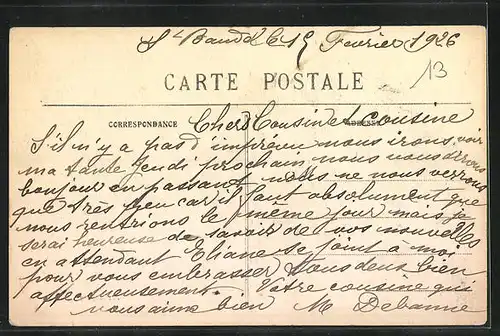 St Baudel 15 Fevrier 1926
13
CARTE POSTALE
CORRESPONDANCE ADRESSE
Chers Cousin et Cousine
S'il n'y a pas d'imprévu nous irons voir
ma tante Jeudi prochain nous vous dirons
bonjour en passant mais ne nous verrons
que très peu car il faut absolument que
nous rentrions le même jour mais je
serai heureuse de savoir de vos nouvelles
en attendant Eliane se joint a moi
pour vous embrasser tous deux bien
affectueusement. Votre cousine qui
vous aime bien M